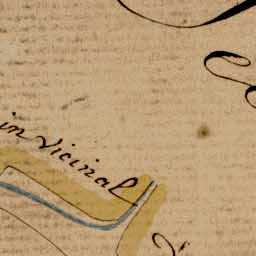 in vicinal